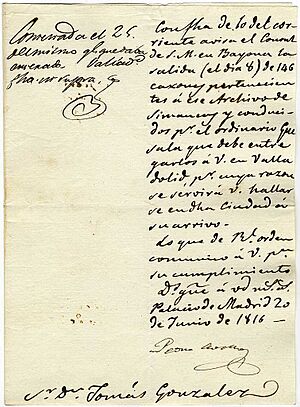 Contestada el 25
del mismo
fha. ut supra.
Con fha de 10 del cor-
riente avisa el Consul
de S. M. en Bayona la
salida (el dia 8) de 146
caxones pertenecien-
tes á ese Archivo de
Simancas y conduci-
dos pr. el ordinario
que debe entre-
garlos á V. en Valla-
dolid, pr. cuya razon
se servirá V. hallar-
se en dha Ciudad á
su arrivo.
Lo que de Rl. orden
comunico á V. pa.
su cumplimiento
Palacio de Madrid 20
de Junio de 1816 -
Sr. Dn. Tomás Gonzalez